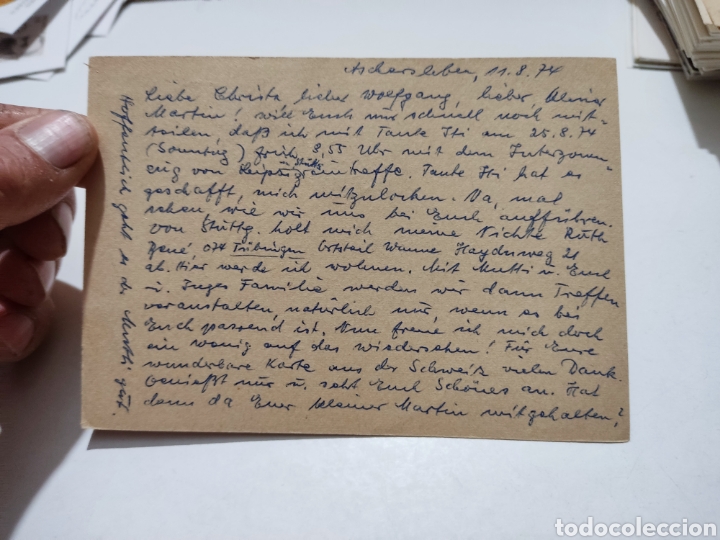 Aschersleben, 11.8.74
Liebe Christa, lieber Wolfgang, lieber kleiner
Martin! Will Euch nur schnell noch mit-
teilen, daß ich mit Tante Isi am 25.8.74
(Sonntag) früh 8,55 Uhr mit dem Interzonen-
zug von Leipzig in Stuttg. eintreffe. Tante Isi hat es
geschafft, mich mitzulocken. Na, mal
sehen, wie wir uns bei Euch aufführen.
Von Stuttg. holt mich meine Nichte Ruth
074 Tübingen Ortsteil Wanne Haydnweg 21
ab. Hier werde ich wohnen. Mit Mutti u. Euch
u. Inges Familie werden wir dann Treffen
veranstalten, natürlich nur, wenn es bei
Euch passend ist. Nun freue ich mich doch
ein wenig auf das Wiedersehen! Für Eure
wunderbare Karte aus der Schweiz vielen Dank.
Genießt nur u. seht Euch Schönes an. Hat
denn da Euer kleiner Martin mitgehalten?
Hoffentlich geht es der Mutti gut.
todocoleccion